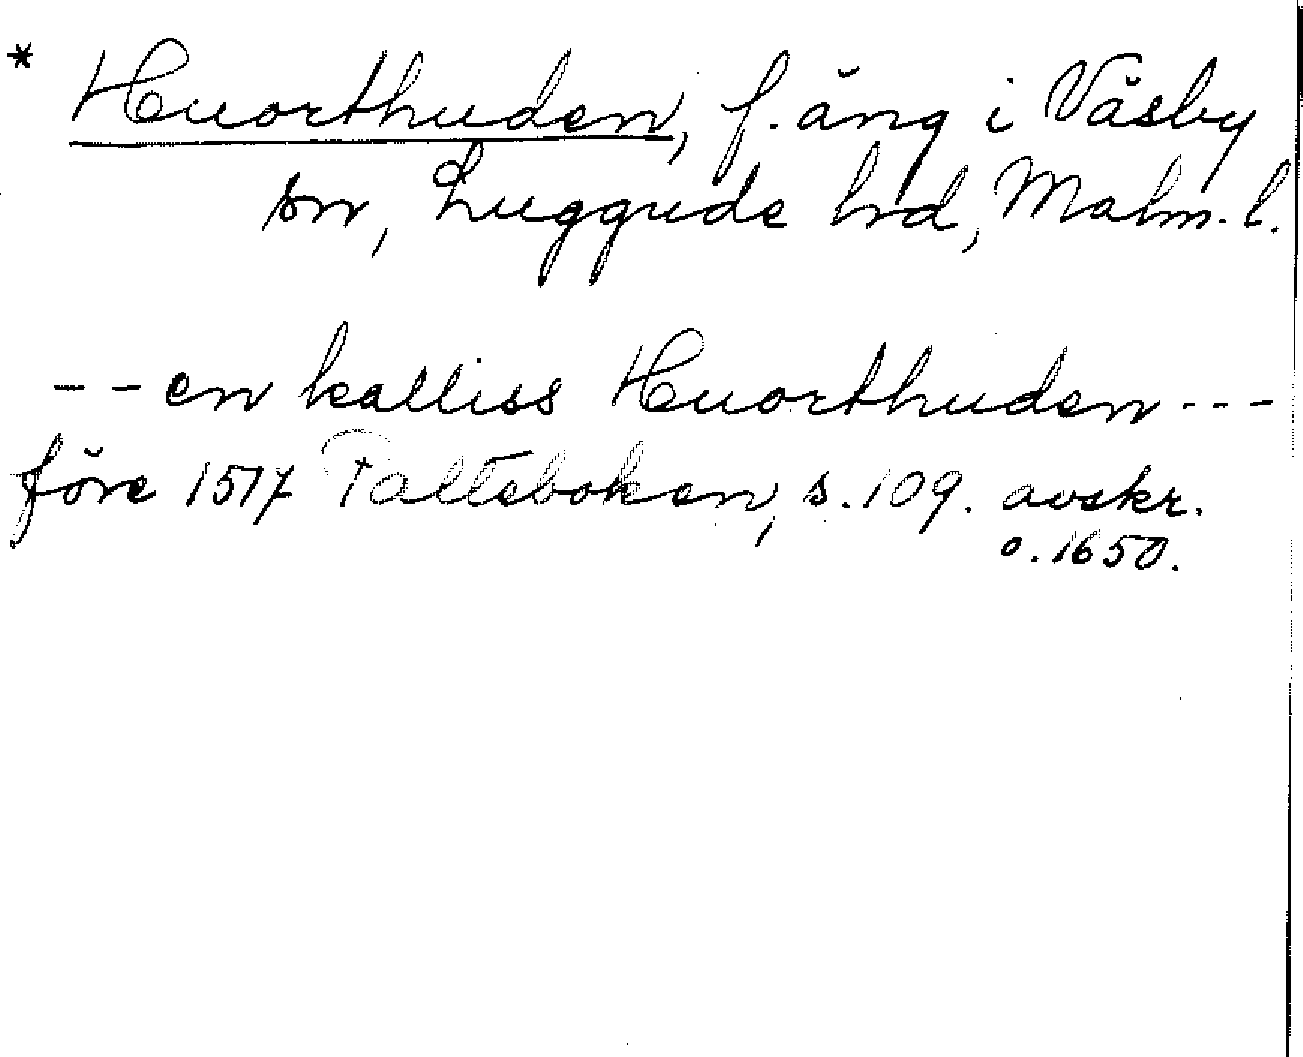 * Huorthuden, f. äng i Väsby
sn, Luggude hrd, Malm. l.
-- en kalliss Huorthuden ---
före 1517 Palteboken, s. 109. avskr.
o. 1650.